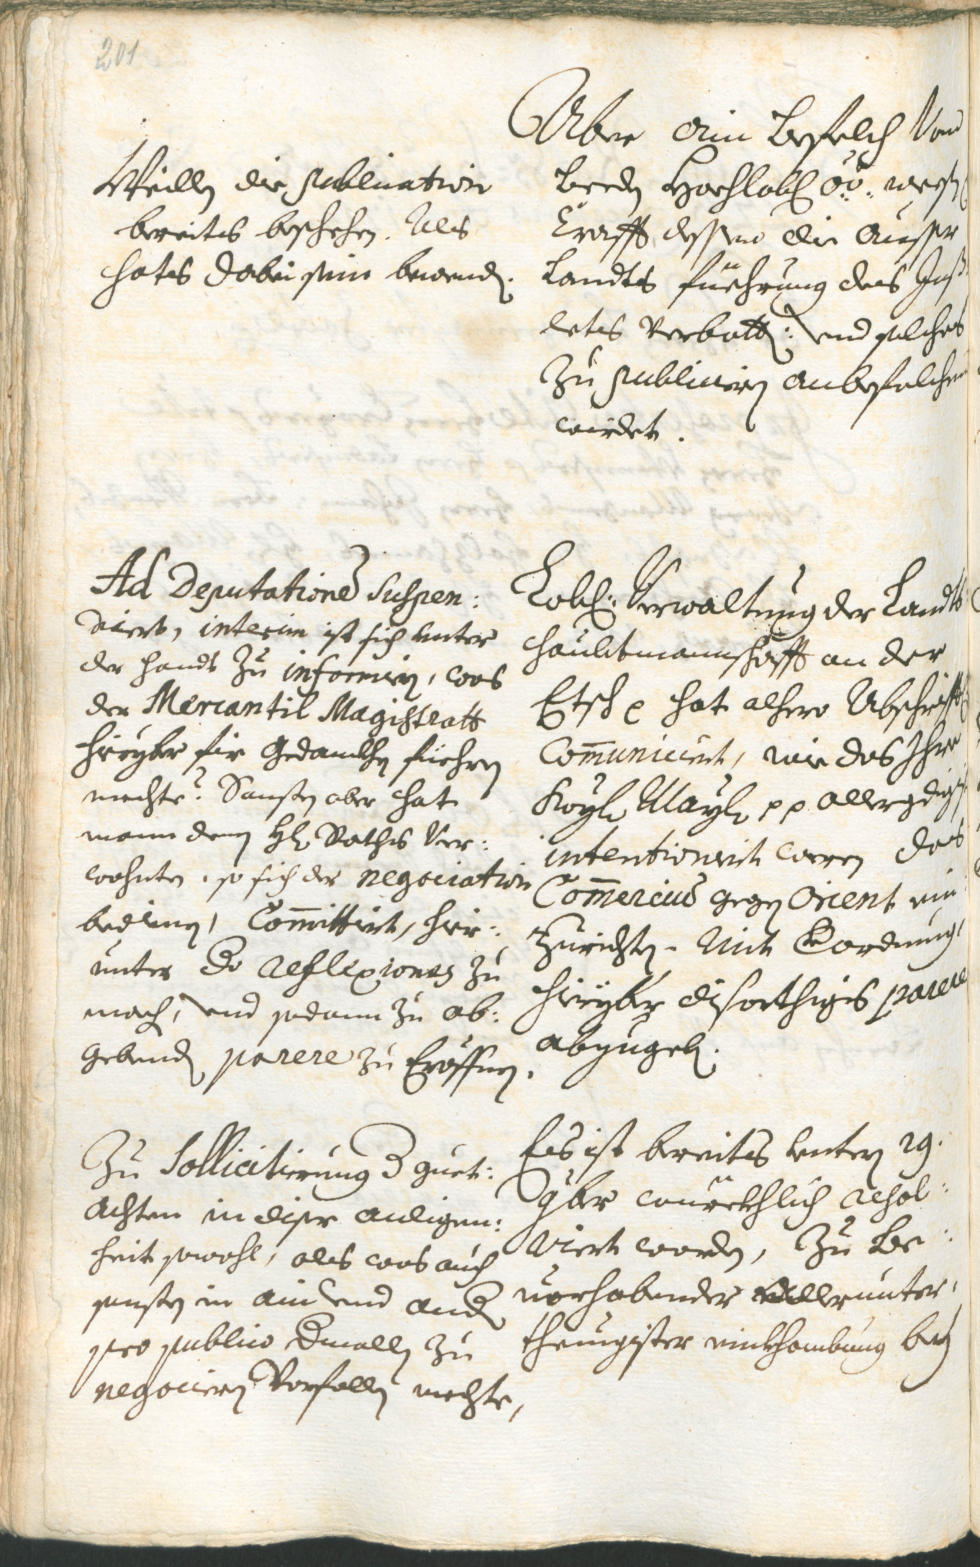 201
Über ain Befelch Von
Beeden Hochlobl: oö: weesen
Crafft dessen die Ausser
Landts füehrung des
letts Verbotten: und solches
Zu publiciern anbefelchen
würdet.
Weillen die publication
bereits beschehen. Als
hat es dabei sein bewenden.
Lobl: Verwaltung der Landts
haubtmannschafft an der
Etsch e hat alhero Abschrifft
Com̄uniciert, wie das Ihro
Kayl: May: p p allergdigst
intentioniert weren das
Com̄ercium gegen Orient ein
Zurichten. Mit Verordnung,
hieryber disorthiges parere
abzugeben.
Ad Deputationem Suspen:
diert, interim ist sich unter
der handt Zu informiern, was
der Mercantil Magistratt
hieryber für Gedankhen füehren
mechte? Sonsten aber hat
mann denen H: Raths Ver:
wohnten, so sich der negociation
bedienen, Com̄ittiert, hier:
unter die reflexiones zu
machen, und sodann zu ab:
gebenden parere zu Eröffnen.
Es ist bereits unterm 29.
9ber würckhlich resol:
viert worden, Zu Be:
vorhabender Allerunter:
thenigister einkhombung bey
Zu Sollicitierung d guet:
achten in diser anligen:
heit sowohl, als was auch
sonsten in ain und andern
pro publico Einmallen zu
negociern Vorfallen mechte,